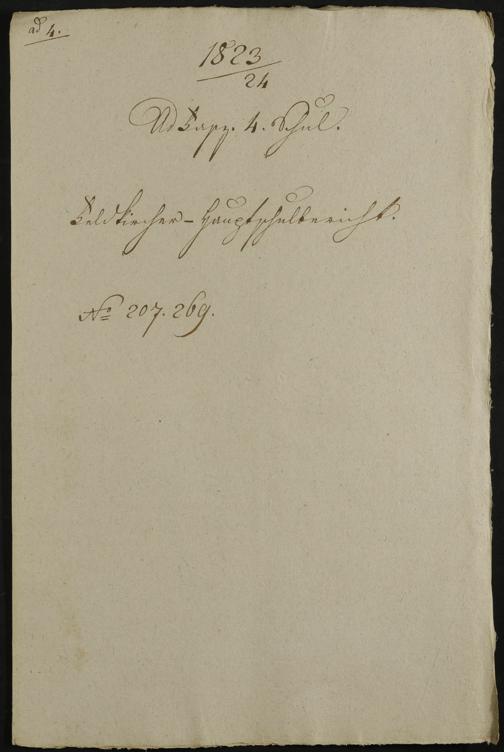 ad 4.
1823
24
Ad Fasz. 4. Schul.
Feldkircher-Hauptschulbericht.
No 207. 269.